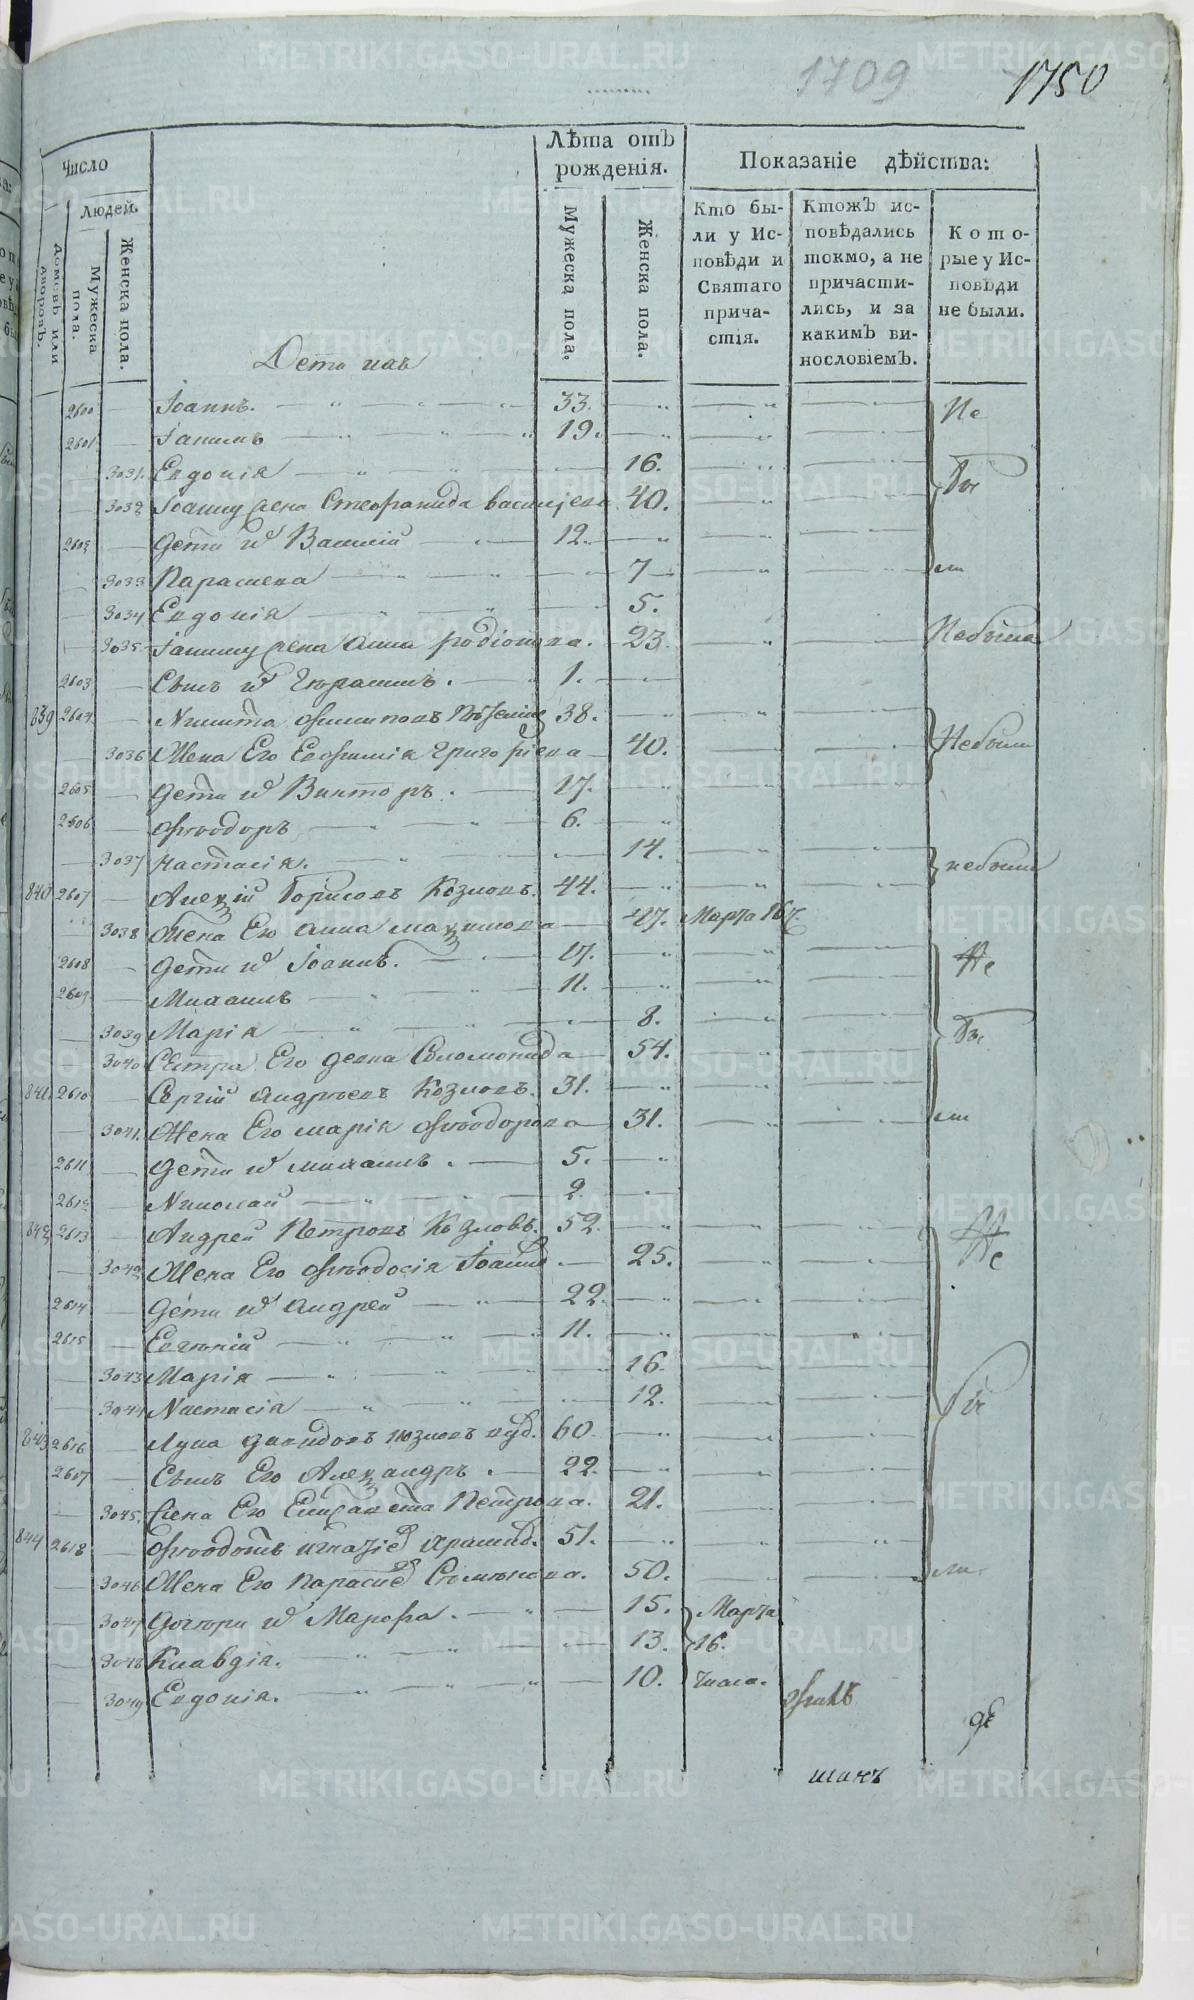 1709 1750
Число
Людей.
домовъ или дворовъ.
Мужеска пола.
Женска пола.
Лѣта отъ рожденія.
Мужеска пола.
Женска пола.
Показаніе дѣйства:
Кто были у Исповѣди и Святаго причастія.
Ктожъ исповѣдались токмо, а не причастились, и за какимъ винословіемъ.
Которые у Исповѣди не были.
Дети ихъ
2600 Іоаннъ. 33. Не
2601 19.
3031. Евдокія 16. бы
3032 жена Стефанида 40.
2602 Дети ихъ Василій 12.
3033 Параскева 7 ли
3034 Евдокія 5.
3035 жена Анна Родіонова. 23 Небыла
2603 Сынъ ихъ 1.
839 2604 Никита 38. Небыли
3036 Жена Его Евфимія Григоріева 40.
2605 Дети ихъ Викторъ. 17.
2606 Ѳеодоръ 6.
3037 Настасія. 14. небыли
840 2607 Алексій Борисовъ Козловъ. 44.
3038 Жена Его Анна Максимова 47. Марта 16
2608 Дети ихъ Іоаннъ. 17. Не
2609 Михаилъ 11.
3039 Марія 8. бы
3040 Сестра Его девка Соломонида 54.
841 2610 Сергій Андреевъ Козловъ. 31.
3041. Жена Его Марія Ѳеодорова 31. ли
2611 Дети ихъ Михаилъ. 5.
2612 Николай 2
842 2613 Андрей Петровъ Козловъ. 52. Не
3042 Жена Его Ѳеодосія 25.
2614 Дети ихъ Андрей 22
2615 Евгеній 11.
3043 Марія 16
3044 Настасія 12. бы
843 2616 Лука Давидовъ Козловъ 60.
2617 Сынъ Его Александръ. 22
3045. жена Его Елисавета Петрова. 21.
844 2618 Ѳеодотъ 51.
3046 Жена Его 50. ли
3047 Дочери ихъ Марфа. 15. Марта
3048 Клавдія. 13. 16.
3049 Евдокія. 10. числа.